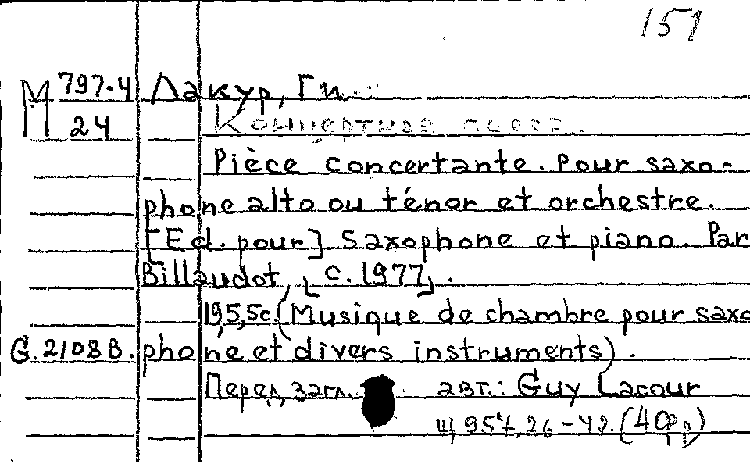 151
М 797-4 Лакур, Ги.
24 Концертная пьеса.
Pièce concertante. Pour saxo-
phone alto ou ténor et orchestre.
[Ed. pour] Saxophone et piano. Par
Billaudot, [c. 1977].
19,5,5c. (Musique de chambre pour saxo
G.2108B. phone et divers instruments).
Перед загл. авт.: Guy Lacour